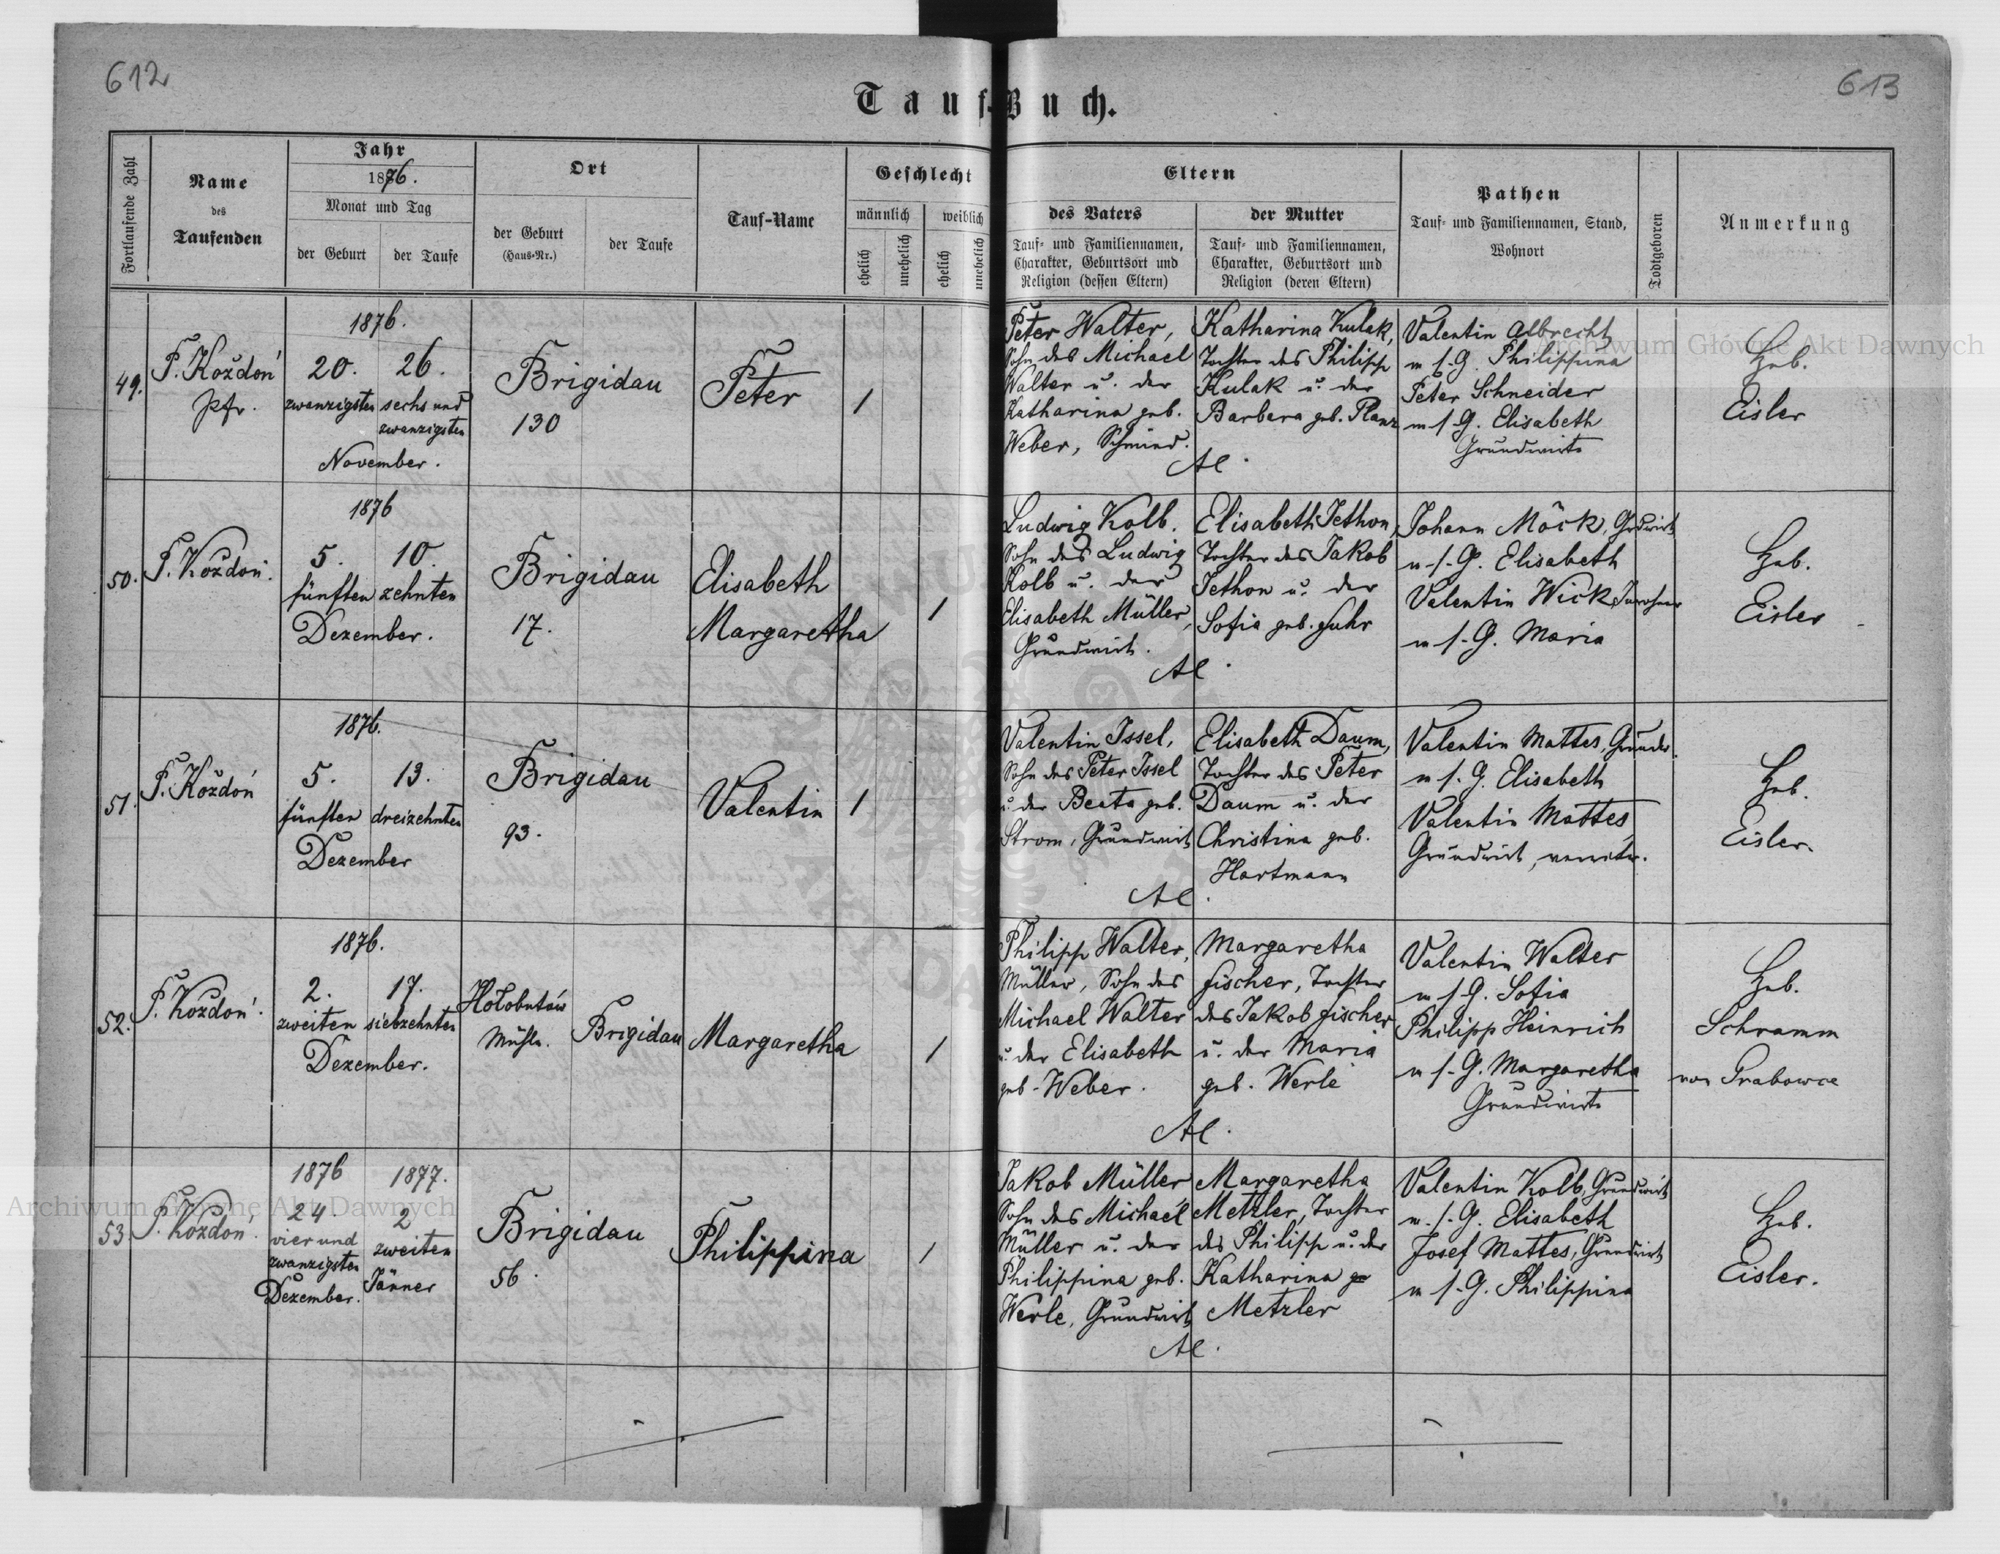 612
613
Tauf-Buch.
Fortlaufende Zahl
Name
des
Taufenden
Jahr
1876.
Monat und Tag
der Geburt
der Taufe
Ort
der Geburt
(Haus-Nr.)
der Taufe
Tauf-Name
Geschlecht
männlich
weiblich
ehelich
unehelich
ehelich
unehelich
Eltern
des Vaters
Tauf- und Familiennamen,
Charakter, Geburtsort und
Religion (dessen Eltern)
der Mutter
Tauf- und Familiennamen,
Charakter, Geburtsort und
Religion (deren Eltern)
Pathen
Tauf- und Familiennamen, Stand,
Wohnort
Todtgeboren
Anmerkung
49.
F. Koždoń
Pfr.
1876.
20.
zwanzigsten
26.
sechs und
zwanzigsten
November.
Brigidau
130
Peter
1
Peter Walter,
Sohn des Michael
Walter u. der
Katharina geb.
Weber, Schmied.
Katharina Kulak,
Tochter des Philipp
Kulak u. der
Barbara geb. Planz
AC.
Valentin Albrecht
m s. G. Philippina
Peter Schneider
m s. G. Elisabeth
Grundwirte
Heb.
Eisler
50.
F. Koždoń.
1876
5.
fünften
10.
zehnten
Dezember.
Brigidau
17.
Elisabeth
Margaretha
1
Ludwig Kolb.
Sohn des Ludwig
Kolb u. der
Elisabeth Müller,
Grundwirt.
Elisabeth Jethon,
Tochter des Jakob
Jethon u. der
Sofia geb. Fuhr
AC.
Johann Möck, Grdwirt
m. s. G. Elisabeth
Valentin Wick, Inwohner
m s. G. Maria
Heb.
Eisler
51.
F. Koždoń
1876.
5.
fünften
13.
dreizehnten
Dezember
Brigidau
93.
Valentin
1
Valentin Issel,
Sohn des Peter Issel
u. der Beata geb.
Strom, Grundwirt
Elisabeth Daum,
Tochter des Peter
Daum u. der
Christina geb.
Hartmann
AC.
Valentin Mattes, Grundw.
m s. G. Elisabeth
Valentin Mattes,
Grundwirt, verwitw.
Heb.
Eisler.
52.
F. Koždoń.
1876.
2.
zweiten
17.
siebzehnten
Dezember.
Hołobutów
Mühle.
Brigidau
Margaretha
1
Philipp Walter,
Müller, Sohn des
Michael Walter
u. der Elisabeth
geb. Weber.
Margaretha
Fischer, Tochter
des Jakob Fischer
u. der Maria
geb. Werle
AC.
Valentin Walter
m s. G. Sofia
Philipp Heinrich
m s. G. Margaretha
Grundwirte
Heb.
Schramm
von Grabowce
53.
F. Koždoń.
1876
24.
vier und
zwanzigsten
Dezember.
1877.
2
zweiten
Jänner
Brigidau
56.
Philippina
1
Jakob Müller
Sohn des Michael
Müller u. der
Philippina geb.
Werle, Grundwirt
Margaretha
Metzler, Tochter
des Philipp u. der
Katharina ge
Metzler
AC.
Valentin Kolb, Grundwirt
m. s. G. Elisabeth
Josef Mattes, Grundwirt
m s. G. Philippina
Heb.
Eisler.
Archiwum Główne Akt Dawnych
Archiwum Główne Akt Dawnych